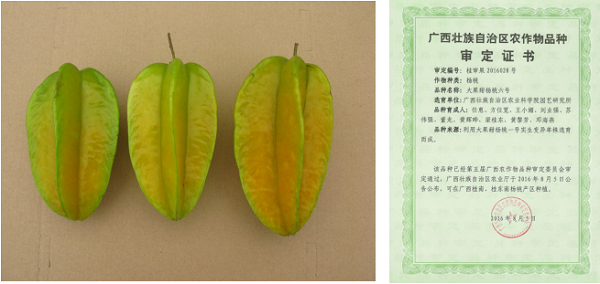 广西壮族自治区农作物品种
审定证书
审定编号：桂审果2016028号
作物种类：杨桃
品种名称：大果甜杨桃六号
选育单位：广西壮族自治区农业科学院园艺研究所
品种育成人：任惠、方位宽、王小媚、刘业强、苏
伟强、董龙、黄辉晔、梁桂东、黄黎芳、邓海燕
品种来源：利用大果甜杨桃一号实生变异单株选育
而成。
该品种已经第五届广西农作物品种审定委员会审
定通过，广西壮族自治区农业厅于2016年8月5日公
告公布，可在广西桂南、桂东南杨桃产区种植。
2016年8月5日